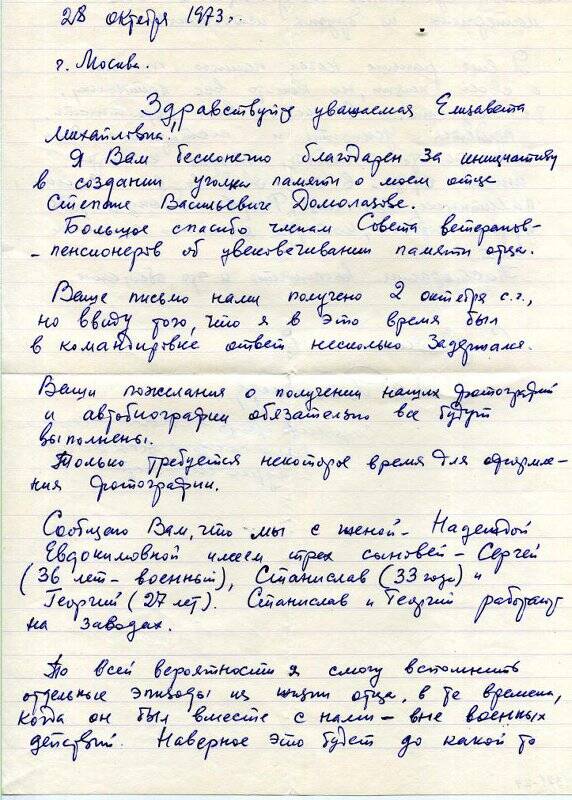 28 октября 1973 г.
г. Москва.
Здравствуйте уважаемая Елизавета
Михайловна!
Я Вам бесконечно благодарен за инициативу
в создании уголка памяти о моем отце
Степане Васильевиче Домолазове.
Большое спасибо членам Совета ветеранов-
-пенсионеров об увековечивании памяти отца.
Ваше письмо нами получено 2 октября с.г.,
но ввиду того, что я в это время был
в командировке ответ несколько задержался.
Ваши пожелания о получении наших фотографий
и автобиографии обязательно все будут
выполнены.
Только требуется некоторое время для оформле-
ния фотографии.
Сообщаю Вам, что мы с женой - Надеждой
Евдокимовной имеем трех сыновей - Сергей
(36 лет - военный), Станислав (33 года) и
Георгий (27 лет). Станислав и Георгий работают
на заводах.
По всей вероятности я смогу вспомнить
отдельные эпизоды из жизни отца, в те времена,
когда он был вместе с нами - вне военных
действий. Наверное это будет до какой то